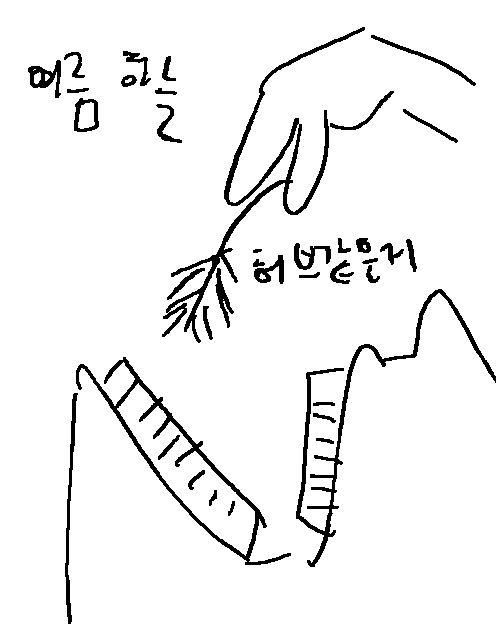 여름 하늘
허브같은거